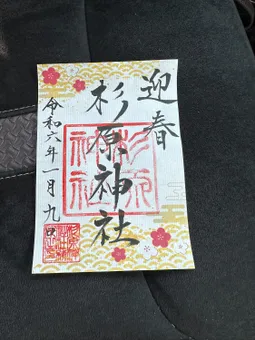 迎春
杉原神社
令和六年一月九日
杉原
神社